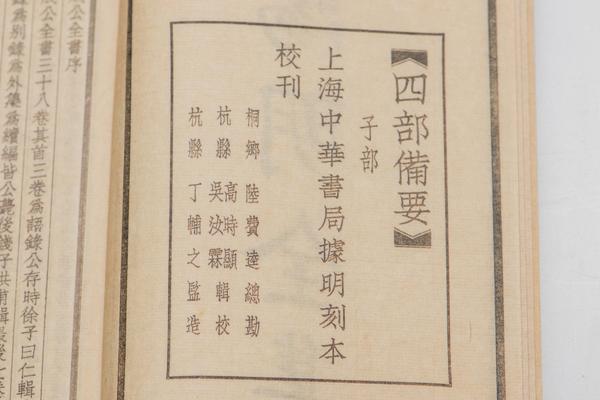 四部備要
子部
上海中華書局據明刻本
校刊
桐鄉 陸費逵總勘
杭縣 高時顯 吳汝霖 輯校
杭縣 丁輔之監造
公全書序
公全書三十八卷其首三卷為語錄公存時徐子曰仁輯
為別錄為外集為續編皆公薨後錢子洪甫輯最後七卷